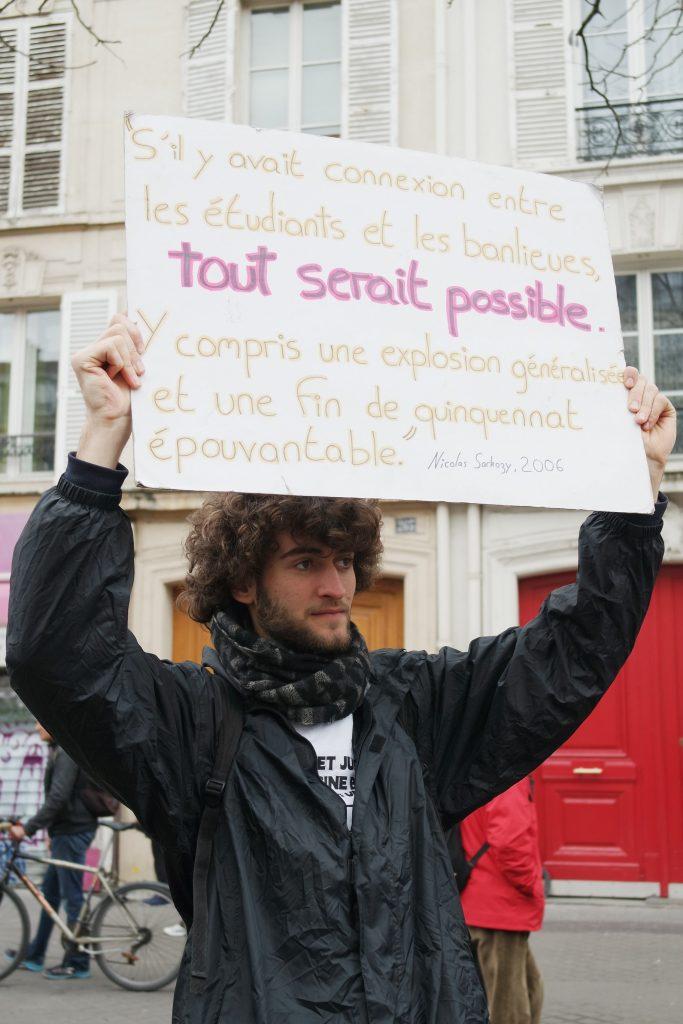 "S'il y avait connexion entre
les étudiants et les banlieues,
tout serait possible.
Y compris une explosion généralisée
et une fin de quinquennat
épouvantable."
Nicolas Sarkozy, 2006
ET JU